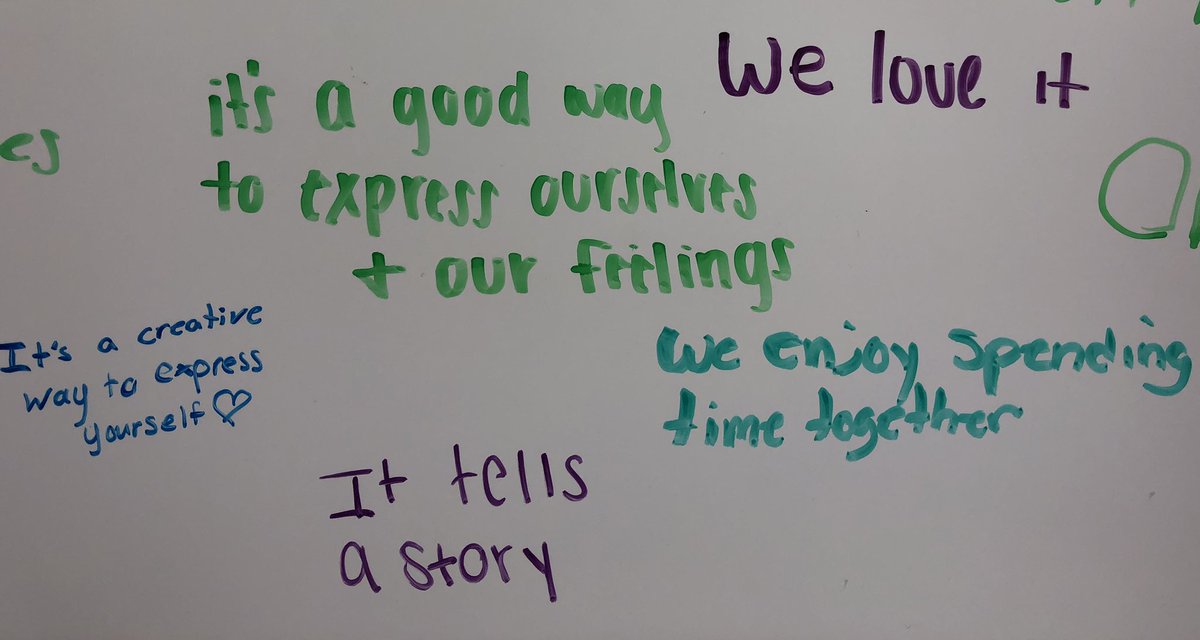 We love it
it's a good way
to express ourselves
+ our feelings
It's a creative
way to express
yourself♡
we enjoy spending
time together
It tells
a story